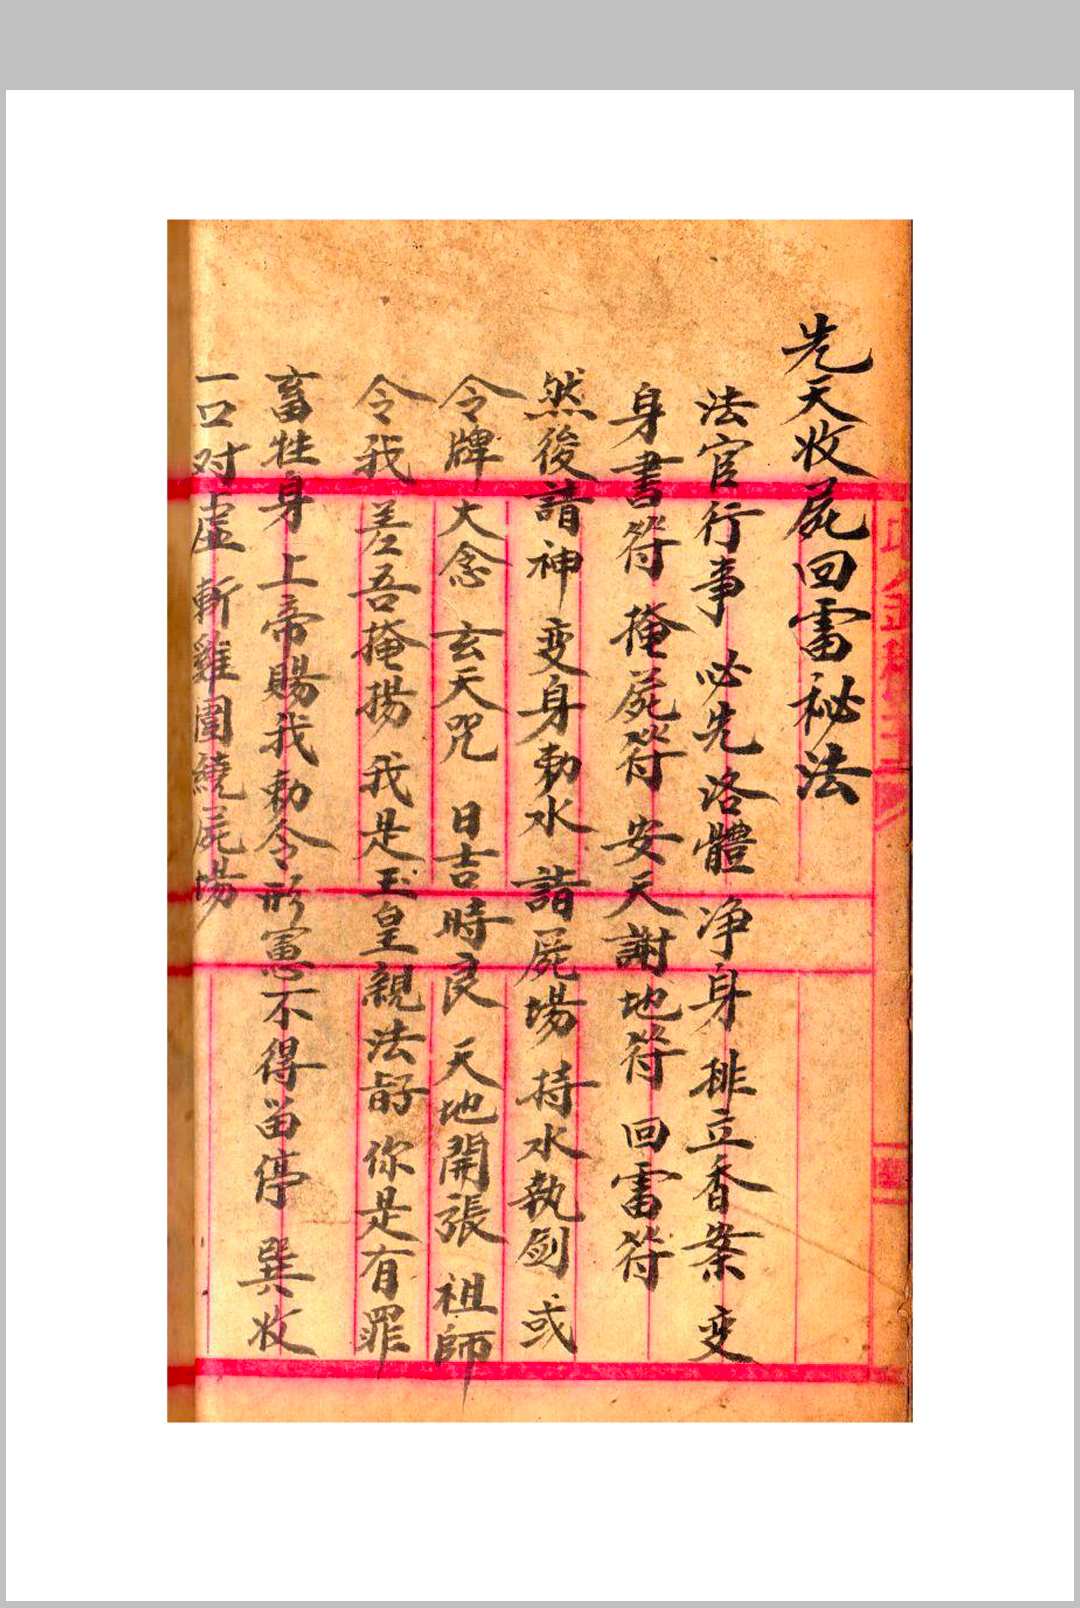 先天收屍回雷祕法
法官行事 必先洛體 净身 排立香案 变
身書符 掩屍符 安天謝地符 回雷符
然後請神 变身勅水 詣屍場 持水執劍 或
令牌 大念 玄天咒 日吉時良 天地開張 祖師
令我 差吾掩揚 我是玉皇親法 你是有罪
畜牲身 上帝賜我勅令形憲不得留停 巽收
一口对虚 斬雞圍繞屍場